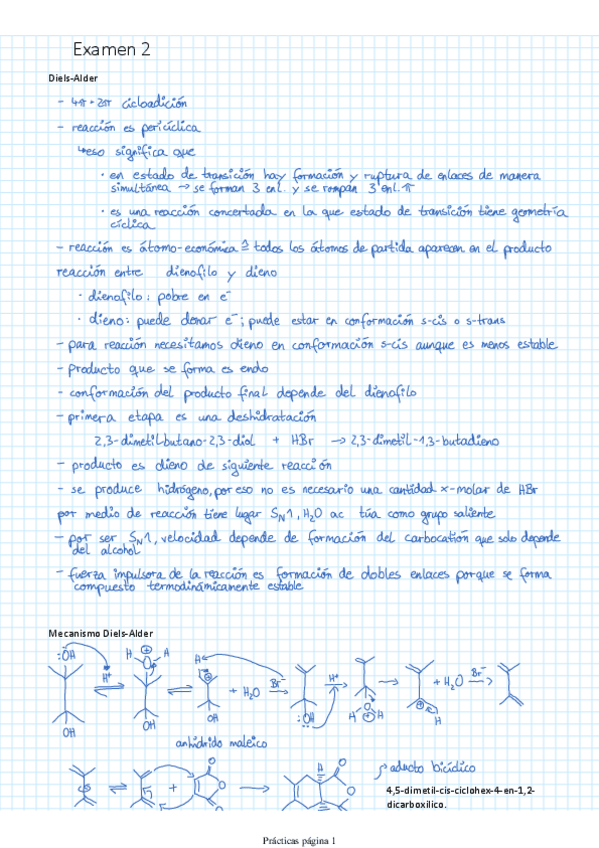 Examen 2
Diels-Alder
- 4π+2π cicloadición
- reacción es pericíclica
↳eso significa que
· en estado de transición hay formación y ruptura de enlaces de manera
simultánea → se forman 3 enl. y se rompan 3 enl. π
· es una reacción concertada en la que estado de transición tiene geometría
cíclica
- reacción es átomo-económica ≙ todos los átomos de partida aparecen en el producto
reacción entre dienofilo y dieno
· dienofilo: pobre en e⁻
· dieno: puede donar e⁻; puede estar en conformación s-cis o s-trans
- para reacción necesitamos dieno en conformación s-cis aunque es menos estable
- producto que se forma es endo
- conformación del producto final depende del dienofilo
- primera etapa es una deshidratación
2,3-dimetilbutano-2,3-diol + HBr → 2,3-dimetil-1,3-butadieno
- producto es dieno de siguiente reacción
- se produce hidrógeno, por eso no es necesario una cantidad x-molar de HBr
por medio de reacción tiene lugar SN1, H₂O ac túa como grupo saliente
- por ser SN1, velocidad depende de formación del carbocatión que solo depende
del alcohol
- fuerza impulsora de la reacción es formación de dobles enlaces porque se forma
compuesto termodinámicamente estable
Mecanismo Diels-Alder
:ÖH H⁺ ⇌ H O H ⇌ H + H₂O Br⁻ → H⁺ → → + H₂O Br⁻ →
OH OH OH :ÖH H O H H
anhídrido maleico
⇌ + O O O → H H O O O ↗ aducto bicíclico
4,5-dimetil-cis-ciclohex-4-en-1,2-
dicarboxílico.
Prácticas página 1